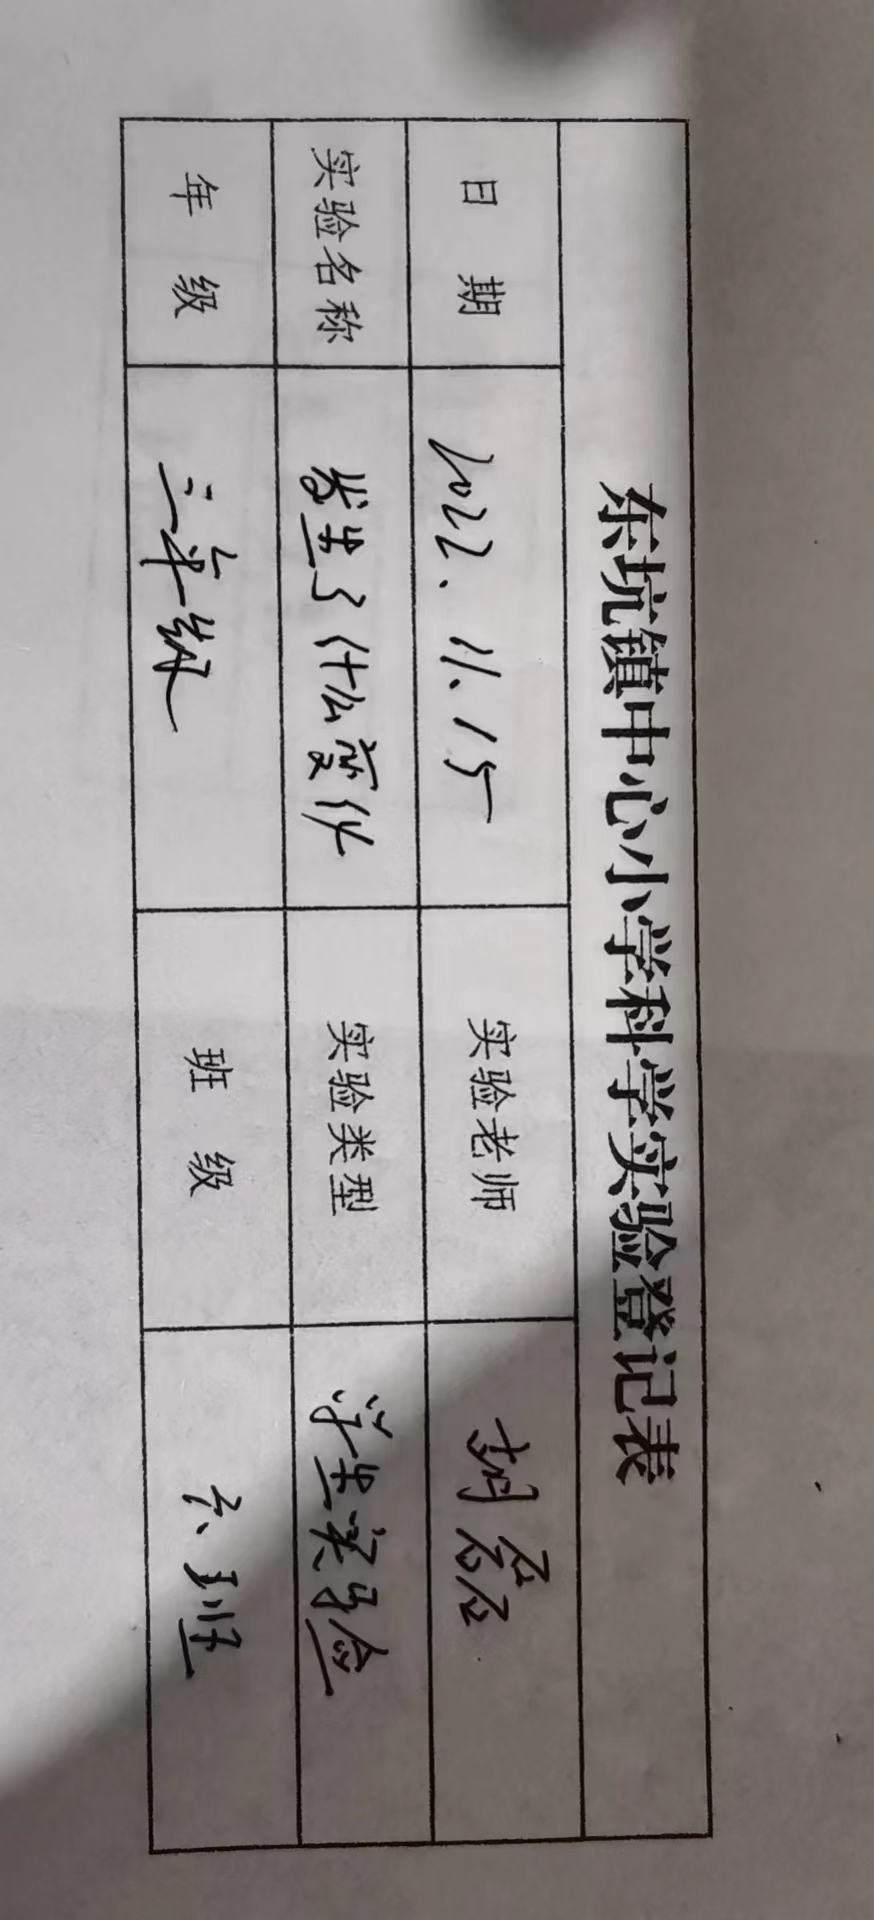 东坑镇中心小学科学实验登记表
日期 2022.11.15 实验老师 胡磊
实验名称 发生了什么变化 实验类型 学生实验
年级 三年级 班级 六班